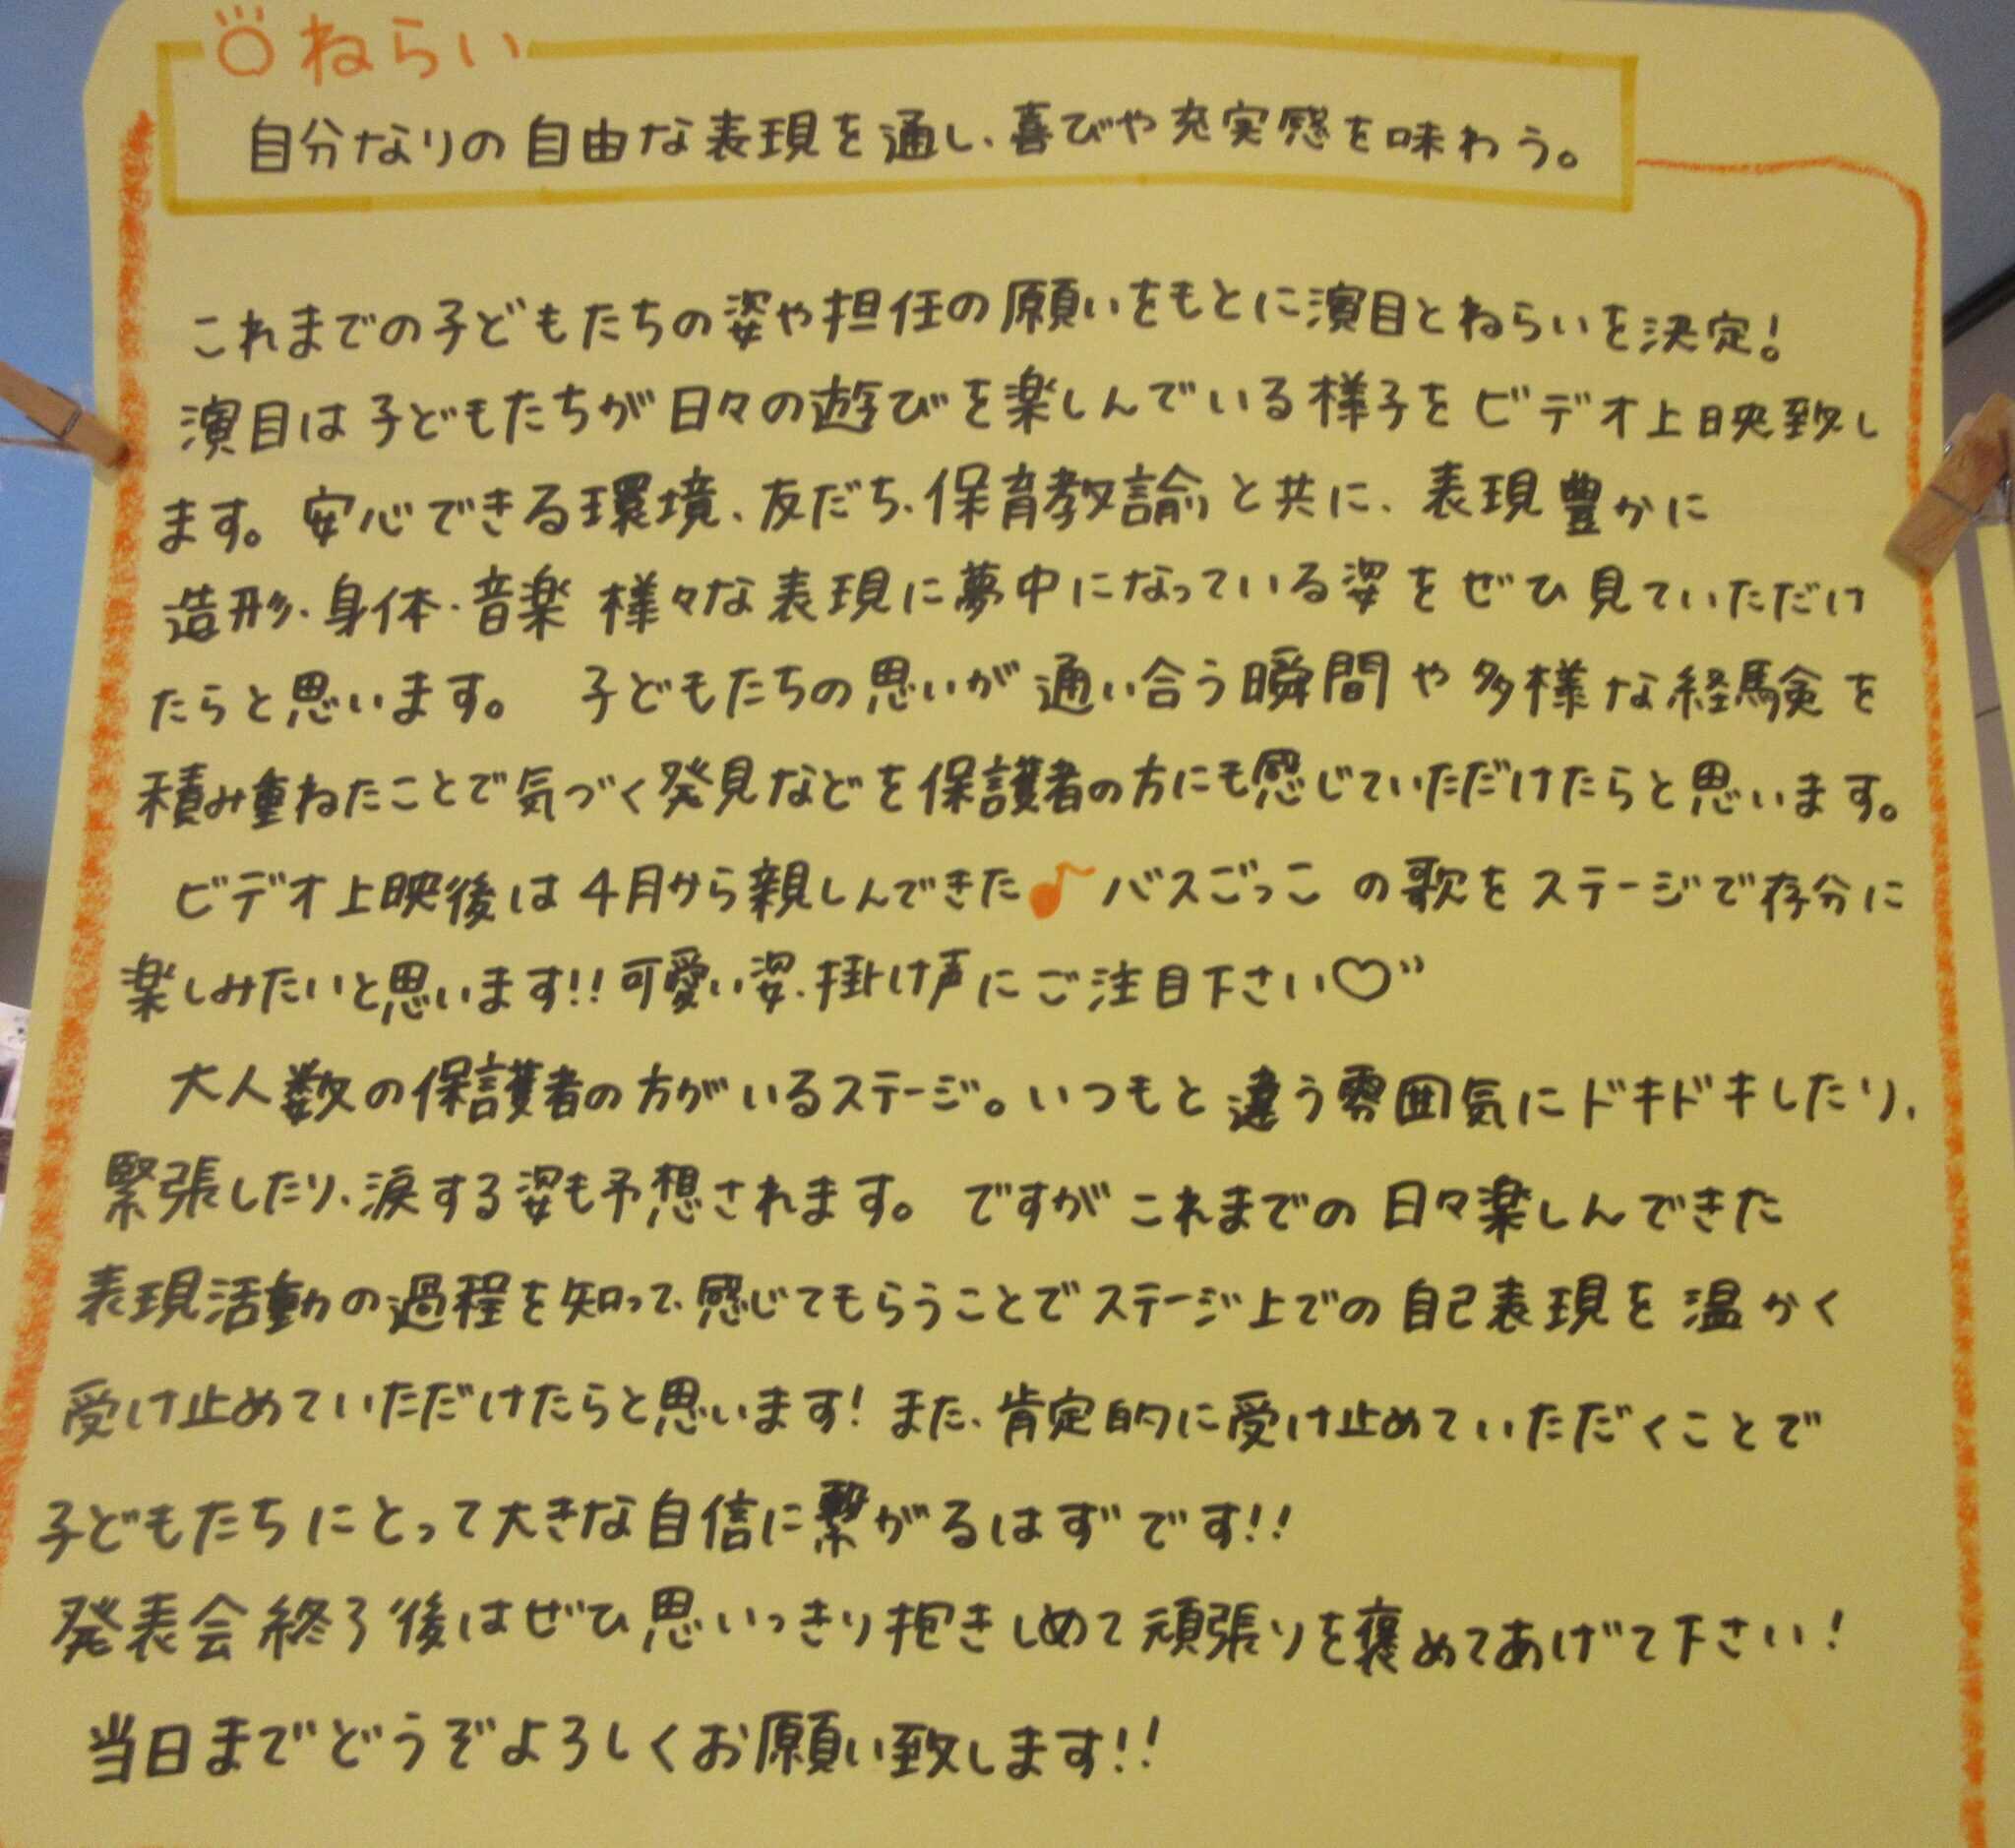 ねらい
自分なりの自由な表現を通し、喜びや充実感を味わう。
これまでの子どもたちの姿や担任の願いをもとに演目とねらいを決定!
演目は子どもたちが日々の遊びを楽しんでいる様子をビデオ上映致し
ます。安心できる環境、友だち、保育教諭と共に、表現豊かに
造形、身体、音楽 様々な表現に夢中になっている姿をぜひ見ていただけ
たらと思います。 子どもたちの思いが通い合う瞬間や多様な経験を
積み重ねたことで気づく発見などを保護者の方にも感じていただけたらと思います。
ビデオ上映後は4月から親しんできた♪バスごっこ の歌をステージで存分に
楽しみたいと思います!!可愛い姿、掛け声にご注目下さい♡"
大人数の保護者の方がいるステージ。いつもと違う雰囲気にドキドキしたり、
緊張したり、涙する姿も予想されます。 ですがこれまでの日々楽しんできた
表現活動の過程を知って、感じてもらうことでステージ上での自己表現を温かく
受け止めていただけたらと思います! また、肯定的に受け止めていただくことで
子どもたちにとって大きな自信に繋がるはずです!!
発表会終了後はぜひ思いっきり抱きしめて頑張りを褒めてあげて下さい!
当日までどうぞよろしくお願い致します!!